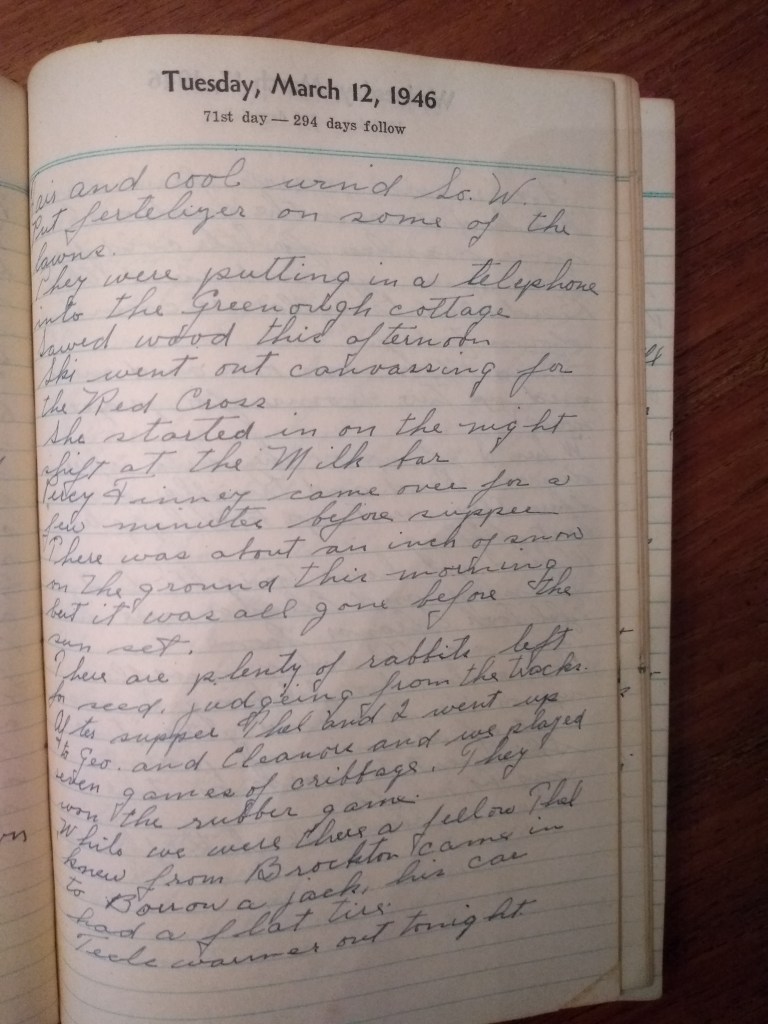 Tuesday, March 12, 1946
71st day — 294 days follow
Fair and cool wind So. W.
Put fertelizer on some of the
lawns.
They were putting in a telephone
into the Greenough cottage
Sawed wood this afternoon
Ski went out canvassing for
the Red Cross
She started in on the night
shift at the Milk bar
Percy Finney came over for a
few minutes before supper
There was about an inch of snow
on the ground this morning
but it was all gone before the
sun set.
There are plenty of rabbits left
for seed, judgeing from the tracks.
After supper Thel and I went up
to Geo. and Eleanors and we played
seven games of cribbage. They
won the rubber game.
While we were there a fellow Thel
knew from Brockton came in
to Borrow a jack, his car
had a flat tire.
Feels warmer out tonight.